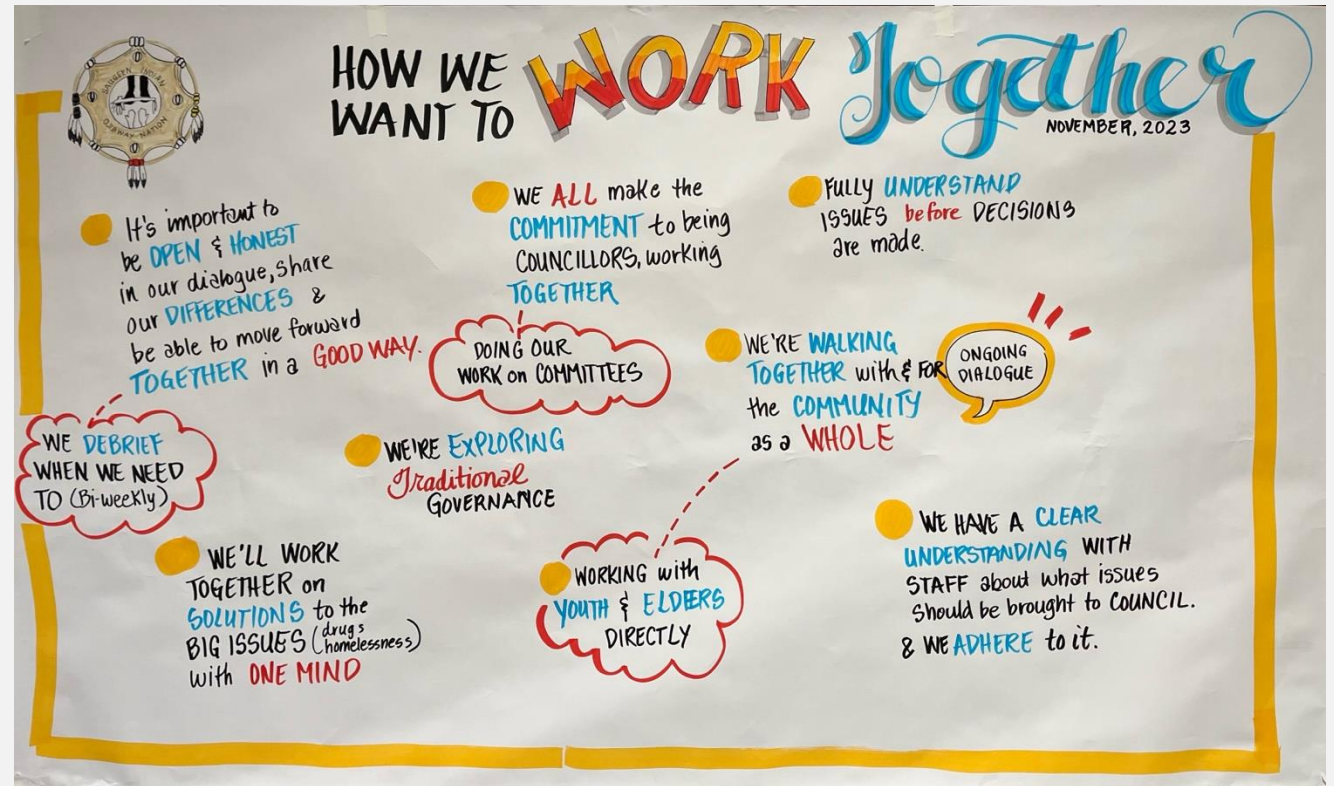 SAUGEEN INDIAN
OJIBWAY NATION
HOW WE
WANT TO
WORK Together
NOVEMBER, 2023
It's important to
be OPEN & HONEST
in our dialogue, share
our DIFFERENCES &
be able to move forward
TOGETHER in a GOOD WAY.
WE DEBRIEF
WHEN WE NEED
TO (Bi-weekly)
WE ALL make the
COMMITMENT to being
COUNCILLORS, working
TOGETHER
DOING OUR
WORK on COMMITTEES
FULLY UNDERSTAND
ISSUES before DECISIONS
are made.
WE'RE WALKING
TOGETHER with & FOR
the COMMUNITY
as a WHOLE
ONGOING
DIALOGUE
WE'RE EXPLORING
Traditional
GOVERNANCE
WE'LL WORK
TOGETHER on
SOLUTIONS to the
BIG ISSUES (drugs
homelessness)
with ONE MIND
WORKING with
YOUTH & ELDERS
DIRECTLY
WE HAVE A CLEAR
UNDERSTANDING WITH
STAFF about what issues
should be brought to COUNCIL.
& WE ADHERE to it.